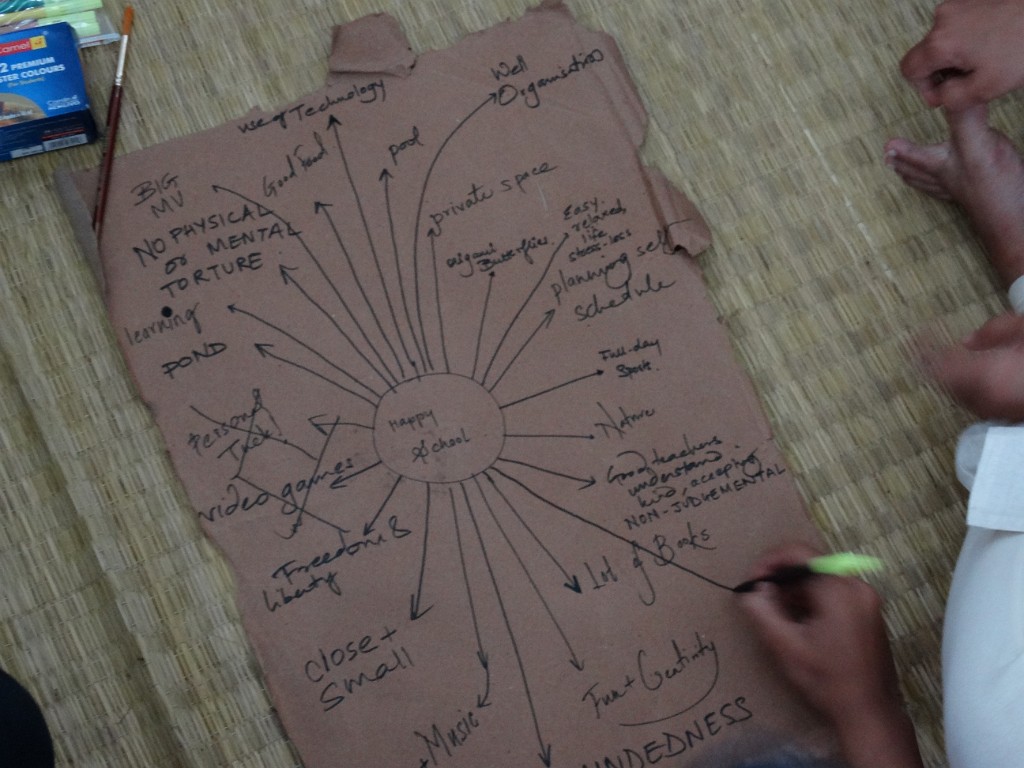 Camel
PREMIUM
STER COLOURS
use of Technology
Well
Organisation
Good food
pool
BIG
MV
private space
NO PHYSICAL
or MENTAL
TORTURE
Easy,
relaxed,
life
stress-less
origami
Butterflies
planning self
schedule
learning
POND
Full-day
Sports.
Personal
Happy
School
Nature
video games
Good teachers
understand
kind, accepting
NON-JUDGEMENTAL
Freedom &
liberty
Lot of Books
close +
small
Fun + Creativity
+ Music
NDEDNESS